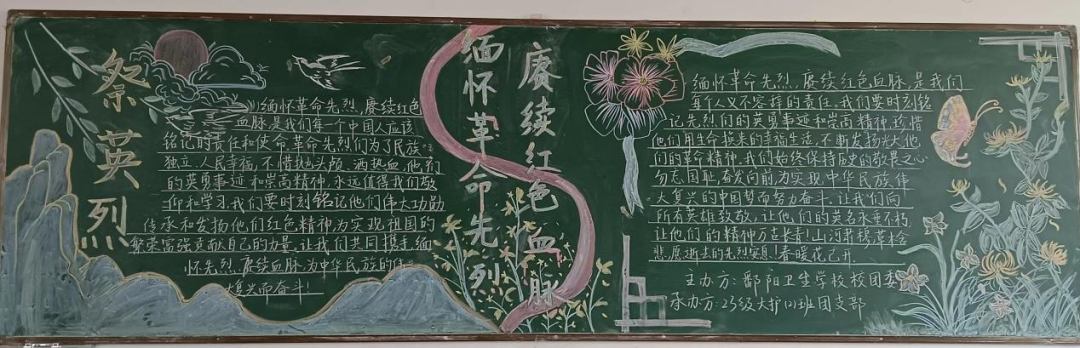 祭英烈
缅怀革命先烈，赓续红色
血脉是我们每一个中国人应该
铭记的责任和使命.革命先烈们为了民族
独立、人民幸福,不惜抛头颅、洒热血,他们
的英勇事迹和崇高精神,永远值得我们敬
仰和学习.我们要时刻铭记他们伟大功勋
传承和发扬他们红色精神,为实现祖国的
繁荣富强贡献自己的力量.让我们共同携手,缅
怀先烈,赓续血脉,为中华民族的伟大
复兴而奋斗!
缅怀革命先烈
赓续红色血脉
缅怀革命先烈,赓续红色血脉,是我们
每个人义不容辞的责任.我们要时刻铭
记先烈们的英勇事迹和崇高精神,珍惜
他们用生命换来的幸福生活,不断发扬光大他
们的革命精神,我们始终保持历史的敬畏之心
勿忘国耻,奋发向前为实现中华民族伟
大复兴的中国梦而努力奋斗.让我们向
所有英雄致敬,让他们的英名永垂不朽
让他们的精神万古长青!山河肃穆草木
悲,愿逝去的先烈安息,春暖花已开.
主办方:鄱阳卫生学校校团委
承办方:23级大护(1)班团支部